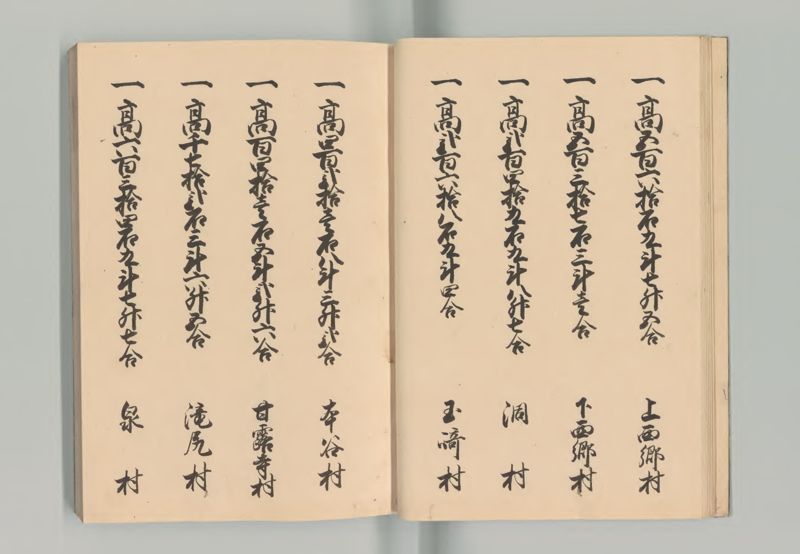 一高五百六拾石九斗七升五合 上西郷村
一高五百三拾七石三斗壱合 下西郷村
一高弐百四拾九石九斗八升七合 洞村
一高弐百六拾八石九斗四合 玉﨑村
一高四百弐拾壱石八斗三升弐合 本谷村
一高百四拾壱石五斗弐升六合 甘露寺村
一高千七拾弐石三斗六升五合 滝尻村
一高六百三拾四石九斗七升七合 泉村